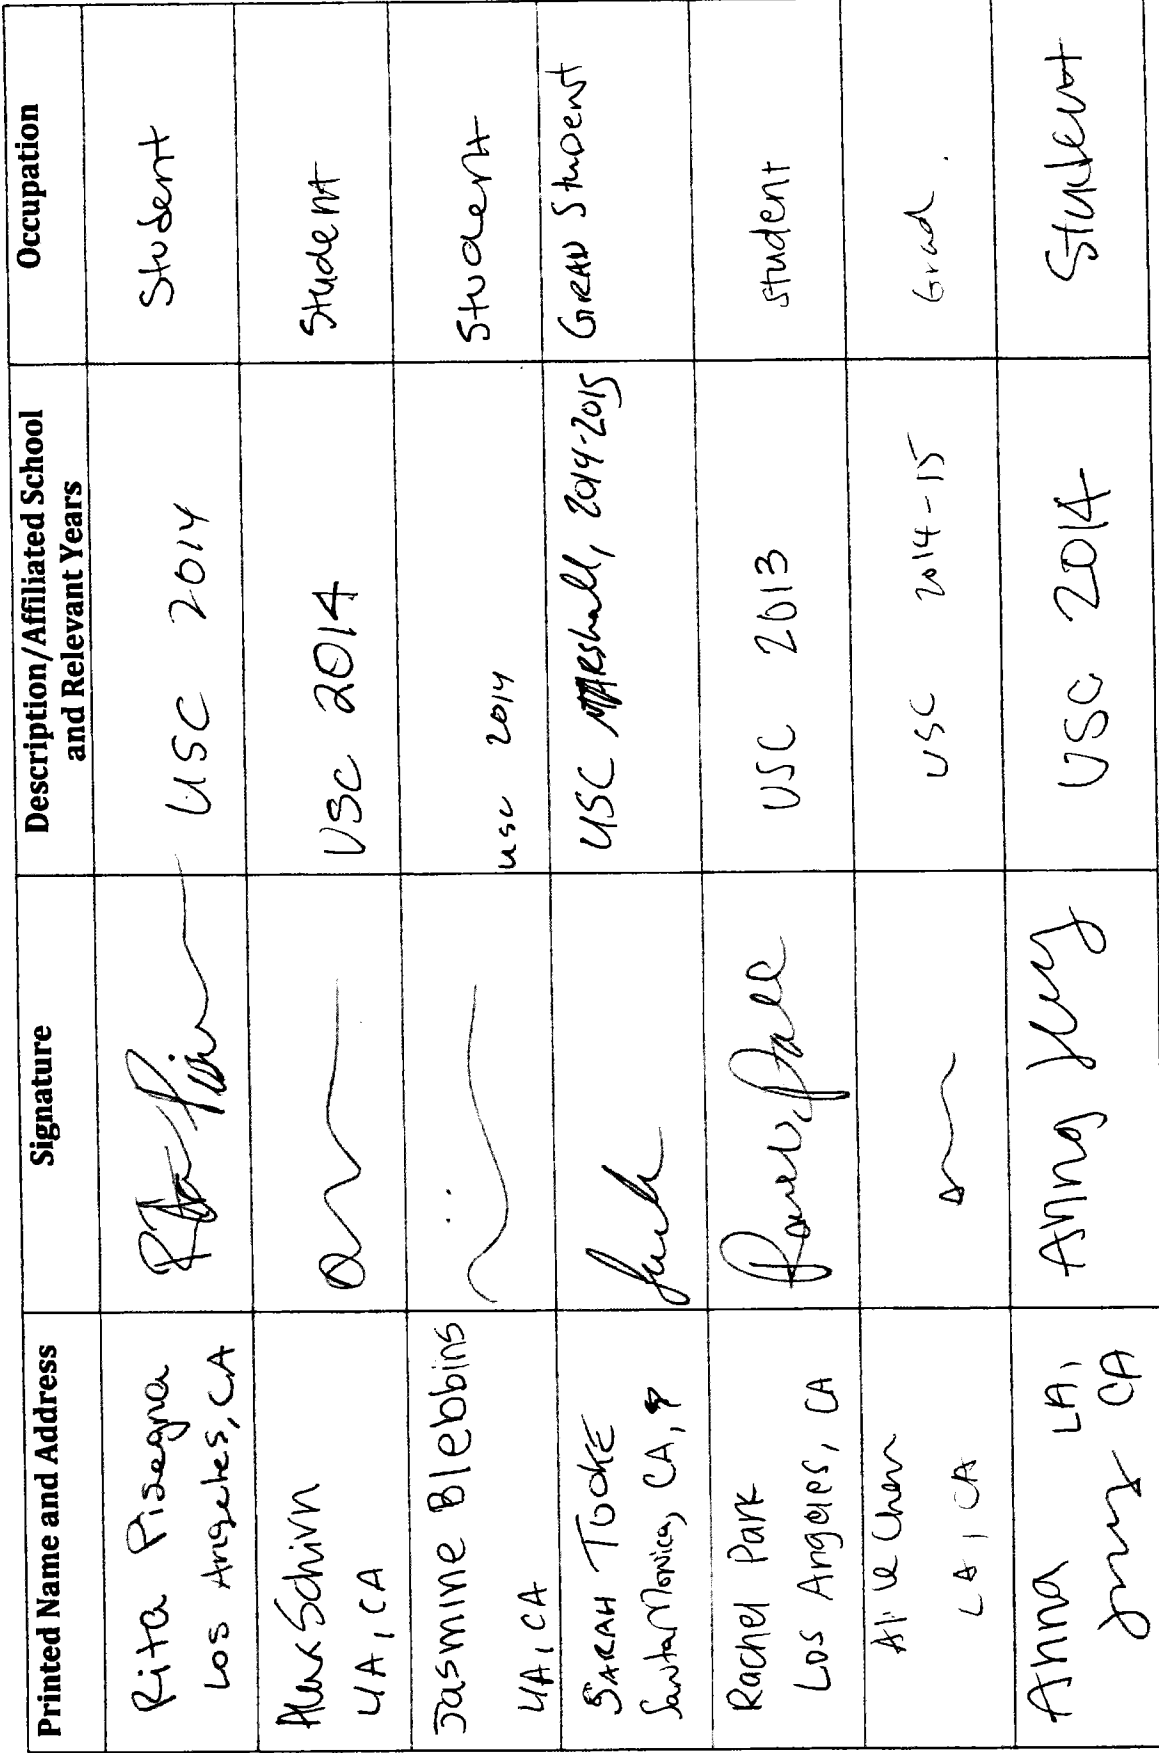 Printed Name and Address
Signature
Description/Affiliated School
and Relevant Years
Occupation
Rita Pisegna
Los Angeles, CA
USC 2014
Student
Alex Schirn
LA, CA
USC 2014
Student
Jasmine Blebbins
LA, CA
usc 2014
Student
SARAH TOOKE
Santa Monica, CA,
USC MARshall, 2014-2015
GRAD Student
Rachel Park
Los Angeles, CA
USC 2013
student
Chen
LA, CA
USC 2014-15
Grad.
Anna
LA,
CA
Anna
USC 2014
Student